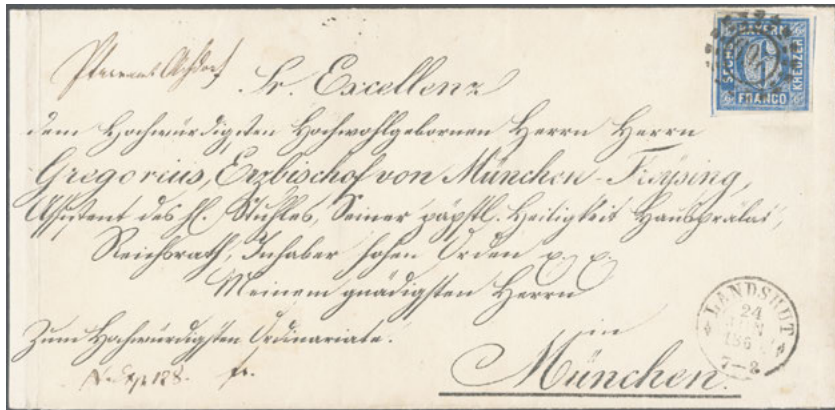 Pfarramt Achdorf
Sr. Excellenz
dem Hochwürdigsten Hochwohlgebornen Herrn Herrn
Gregorius, Erzbischof von München-Freysing,
Assistent des hl. Stuhles, Seiner päpstl. Heiligkeit Hausprälat,
Reichsrath, Inhaber hohen Orden p. p.
Meinem gnädigsten Herrn
Zum Hochwürdigsten Ordinariate.
in
München.
fr.
BAYERN
SECHS
KREUZER
FRANCO
LANDSHUT
24
JUN
186
7-8